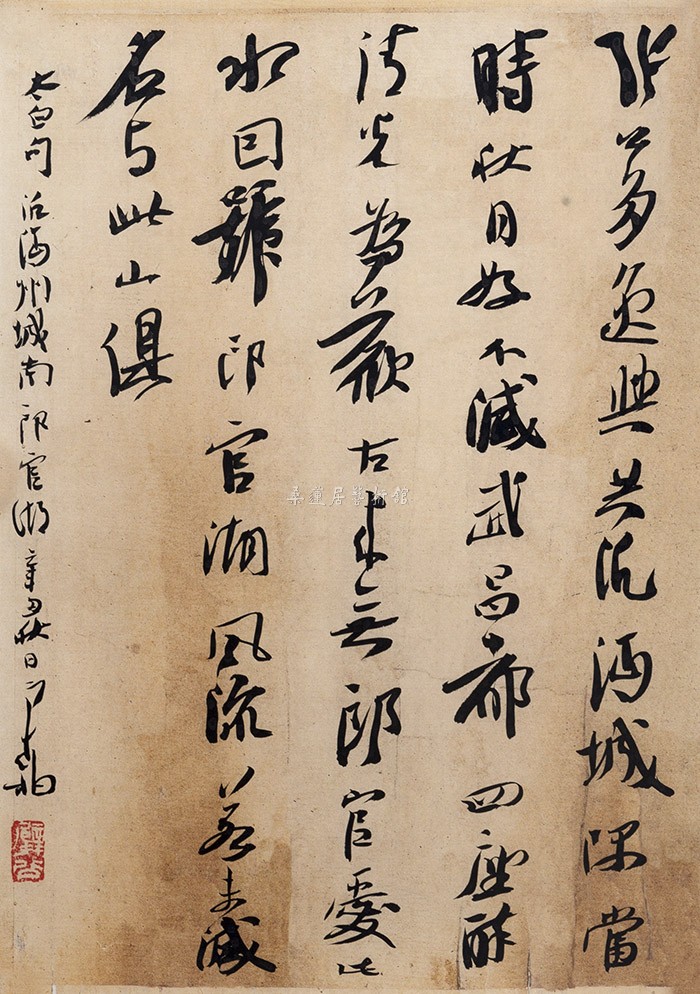 張公多逸興共泛沔城隅當
時秋月好不減武昌都四座醉
清光為歡古來無郎官愛此
水因號郎官湖風流若未減
名与此山俱
太白句 泛沔州城南郎官湖 辛丑秋日
桑蓮居藝術館